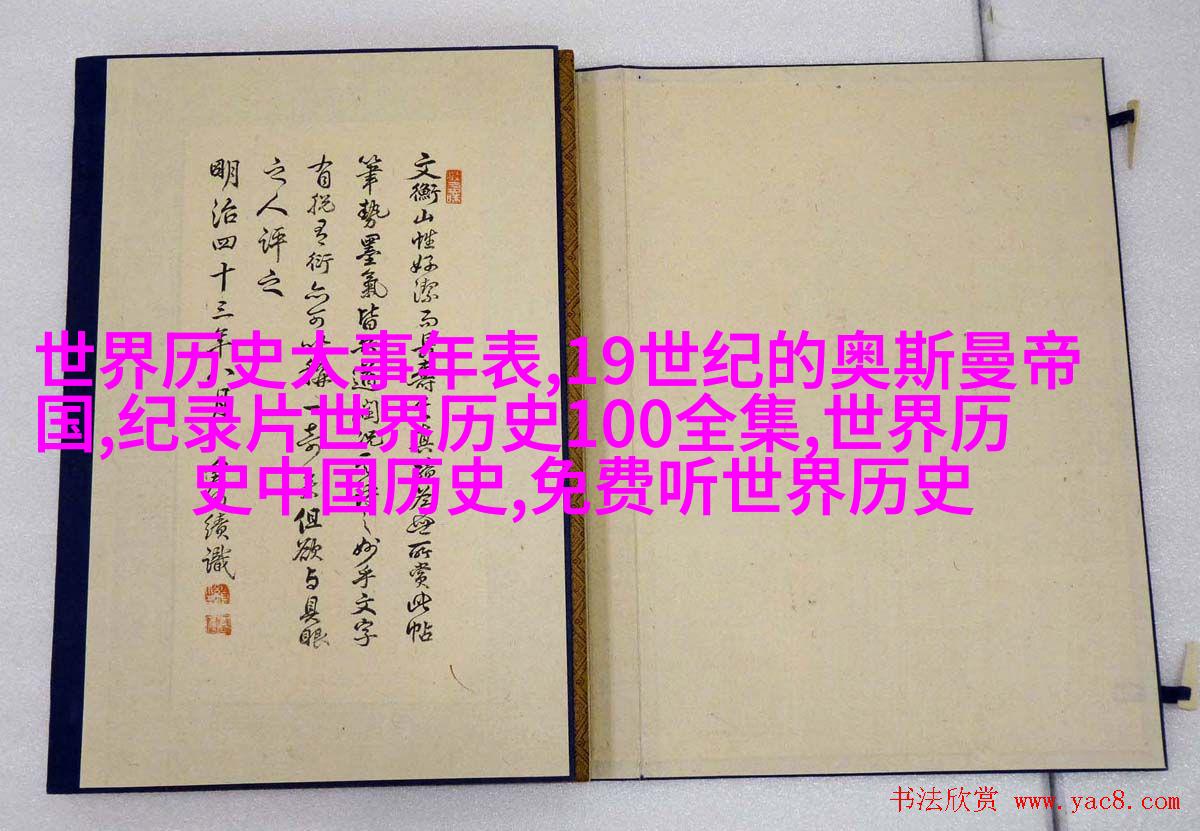 世界历史大事年表,19世纪的奥斯曼帝
国,纪录片世界历史100全集,世界历
史中国历史,免费听世界历史
文衡山性好潔而具壽所賞此帖
筆勢墨氣皆之妙乎文字
有脱有衍亦可以稱一奇但欲与具眼
之人評之
明治四十三年八月績識
书法欣赏 www.yac8.com